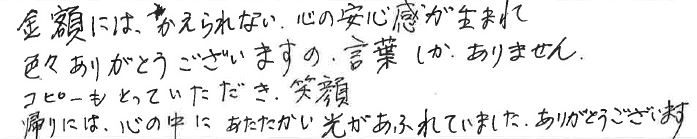 金額には、かえられない、心の安心感が生まれ
色々ありがとうございますの、言葉しか、ありません。
コピーもとっていただき、笑顔
帰りには、心の中にあたたかい光があふれていました。ありがとうございます